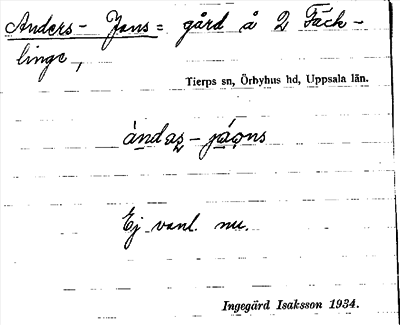 Anders-Jans = gård å 2 Fäck-
linge,
Tierps sn, Örbyhus hd, Uppsala län.
Ej vanl. nu.
Ingegärd Isaksson 1934.